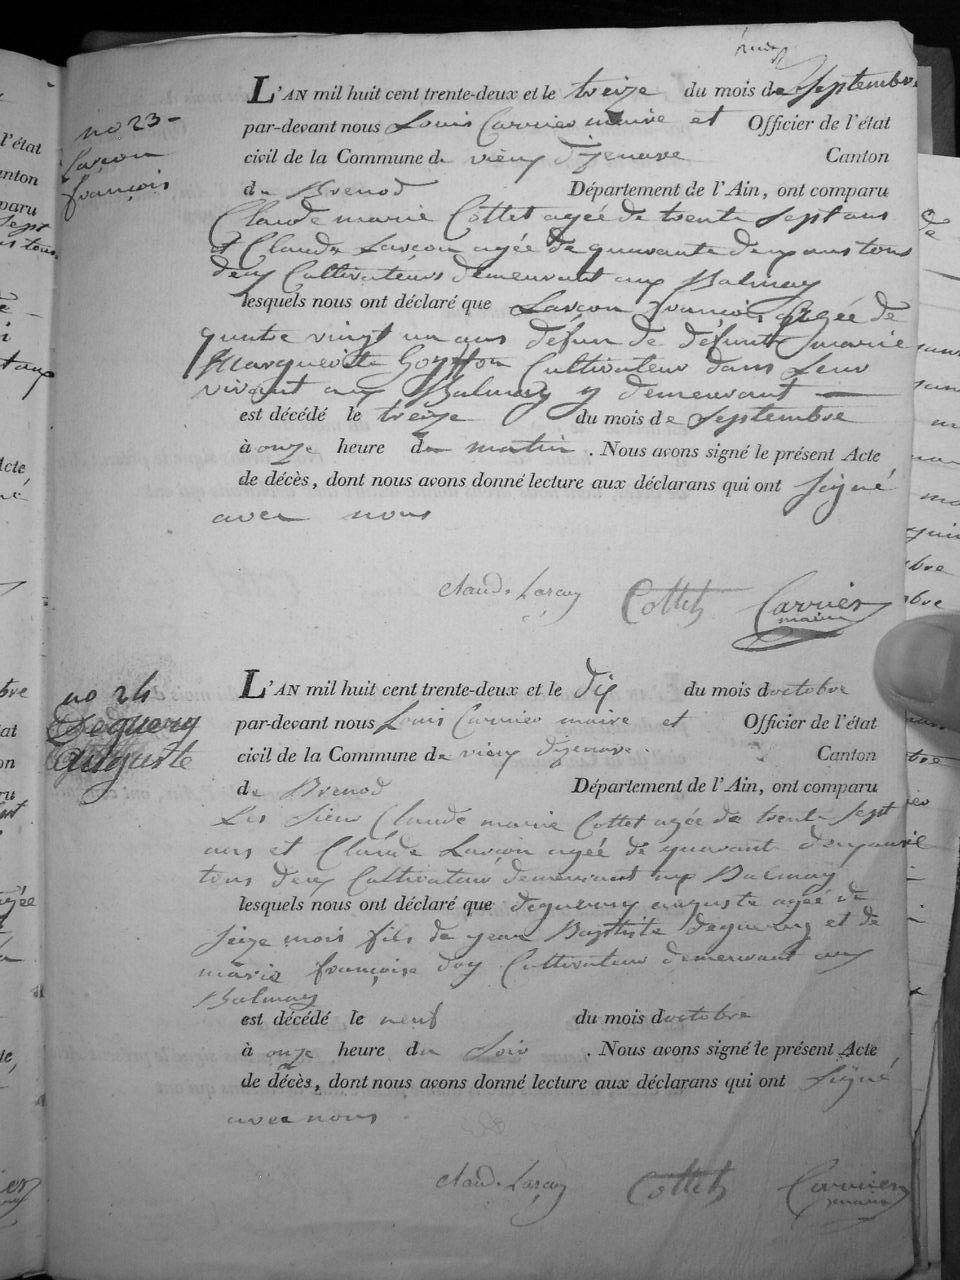 no 23-
Larçon
françois
L'AN mil huit cent trente-deux et le treize du mois de Septembre
par-devant nous Louis Carrier maire et Officier de l'état
civil de la Commune de vieux dizenave Canton
de Brenod Département de l'Ain, ont comparu
Claude marie Cottet agée de trente sept ans
et Claude Larçon agée de quarante deux ans tous
deux Cultivateurs demeurant aux Balmay
lesquels nous ont déclaré que Larçon françois agée de
quatre vingt un ans défun de défunte marie
Marguerite Goyffon Cultivateur dans Leur
vivant aux Balmay y demeurant
est décédé le treize du mois de Septembre
à onze heure du matin . Nous avons signé le présent Acte
de décès, dont nous avons donné lecture aux déclarans qui ont Signé
avec nous
claude Larçon Cottet Carrier
maire
no 24
Deguerry
auguste
L'AN mil huit cent trente-deux et le dix du mois doctobre
par-devant nous Louis Carrier maire et Officier de l'état
civil de la Commune de vieux dizenave. Canton
de Brenod Département de l'Ain, ont comparu
Les Sieur Claude marie Cottet agée de trente Sept
ans et Claude Larçon agée de quarante deux
tous deux Cultivateur demeurant aux Balmay
lesquels nous ont déclaré que deguerry auguste agée de
Seize mois fils de jean Baptiste deguerry et de
marie françoise doy Cultivateur demeurant aux
Balmay
est décédé le neuf du mois doctobre
à onze heure du Soir . Nous avons signé le présent Acte
de décès, dont nous avons donné lecture aux déclarans qui ont Signé
avec nous
claude Larçon Cottet Carrier
maire